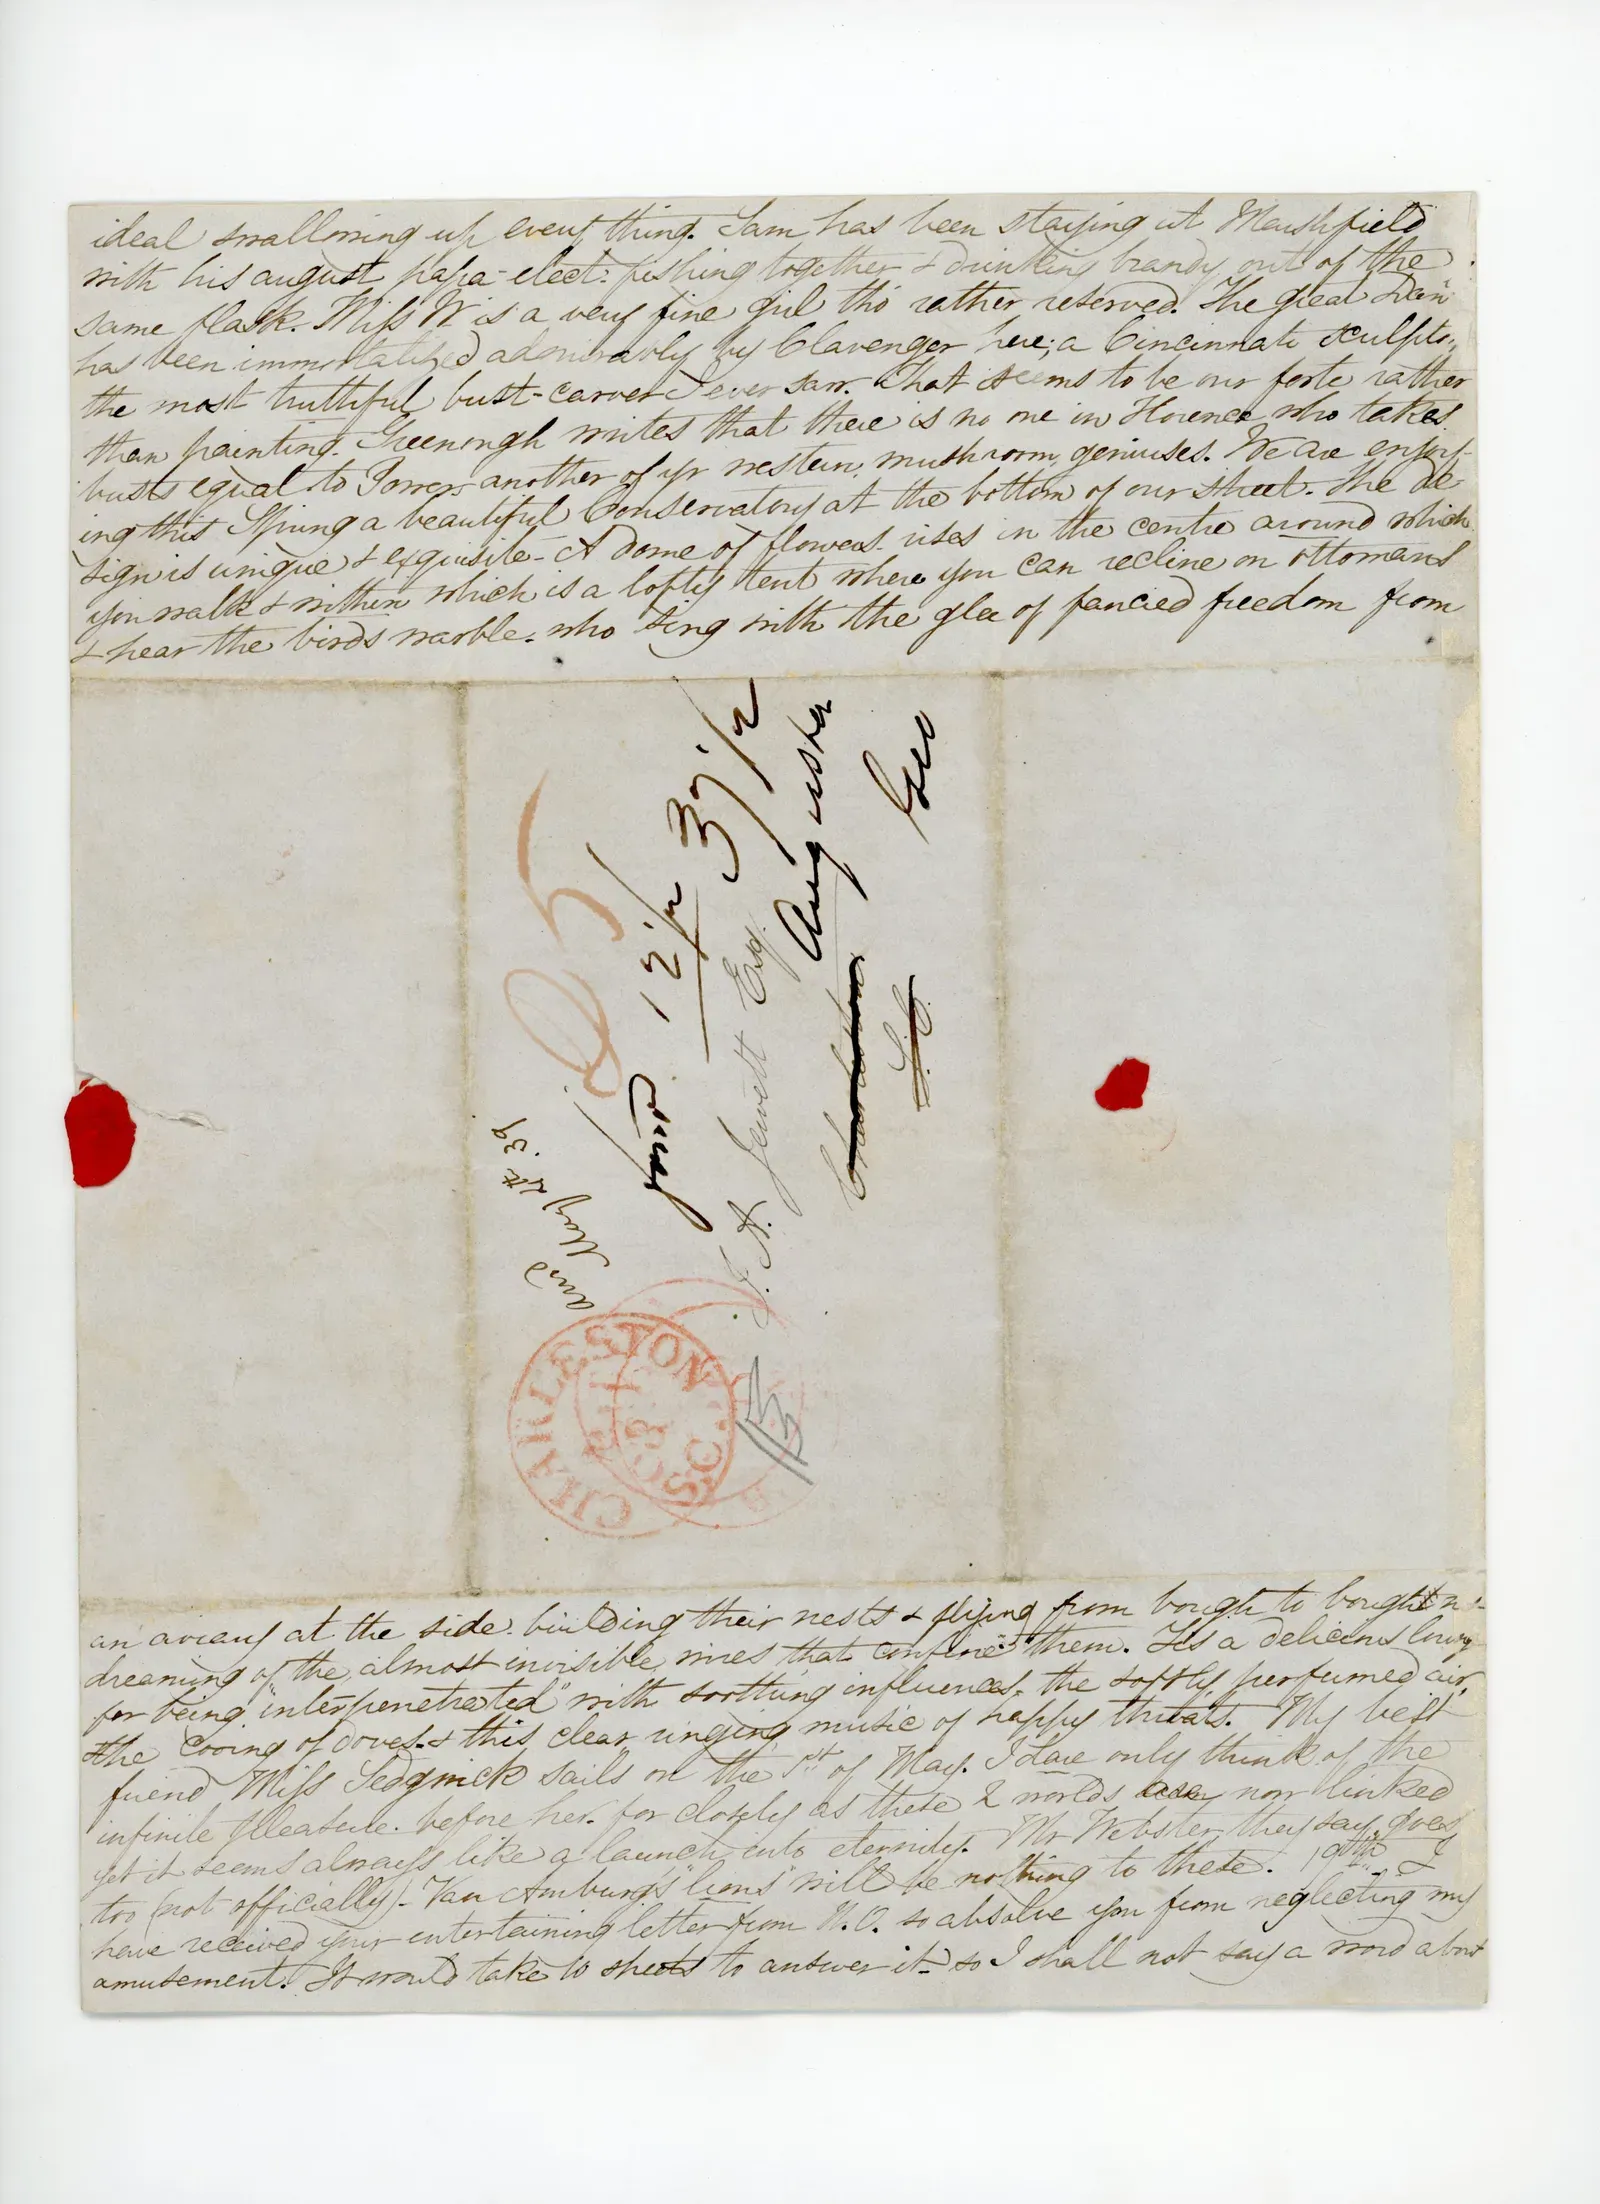 ideal swallowing up every thing. Sam has been staying at Marshfield
with his august papa-elect: fishing together & drinking brandy out of the
same flask. Miss W. is a very fine girl tho' rather reserved. The great Dan'
has been immortalized admirably by Clavenger here; a Cincinnati sculptor,
the most truthful bust-carver I ever saw. That seems to be our forte rather
than painting. Greenough writes that there is no one in Florence who takes
busts equal to Powers another of yr western, mushroom, geniuses. We are enjoy-
ing this Spring a beautiful Conservatory at the bottom of our street. The de-
sign is unique & exquisite - A dome of flowers rises in the centre around which
you walk & within which is a lofty tent where you can recline on ottomans
& hear the birds warble. who sing with the glee of fancied freedom from
25
ford 12 1/2
37 1/2
and May 4th. 39
J. A. Jewett Esq.
Charleston Augusta
S.C. Geo
CHARLESTON
SC.
an aviary at the side. building their nests & flying from bough to bough un-
dreaming of the, almost invisible, wires that confine them. Its a delicious luxury
for being "interpenetrated" with soothing influences, the softly perfumed air,
the cooing of doves. & this clear ringing music of happy throats. My best
friend Miss Sedgwick sails on the 1st of May. I dare only think of the
infinite pleasure. before her. for closely as these 2 worlds are now linked
yet it seems always like a launch into eternity. Mr Webster, they say, goes
too (not officially). Van Amburg's "lions" will be nothing to these. 19th I
have received your entertaining letter from N.O. so absolve you from neglecting my
amusement. It would take 10 sheets to answer it - so I shall not say a word about